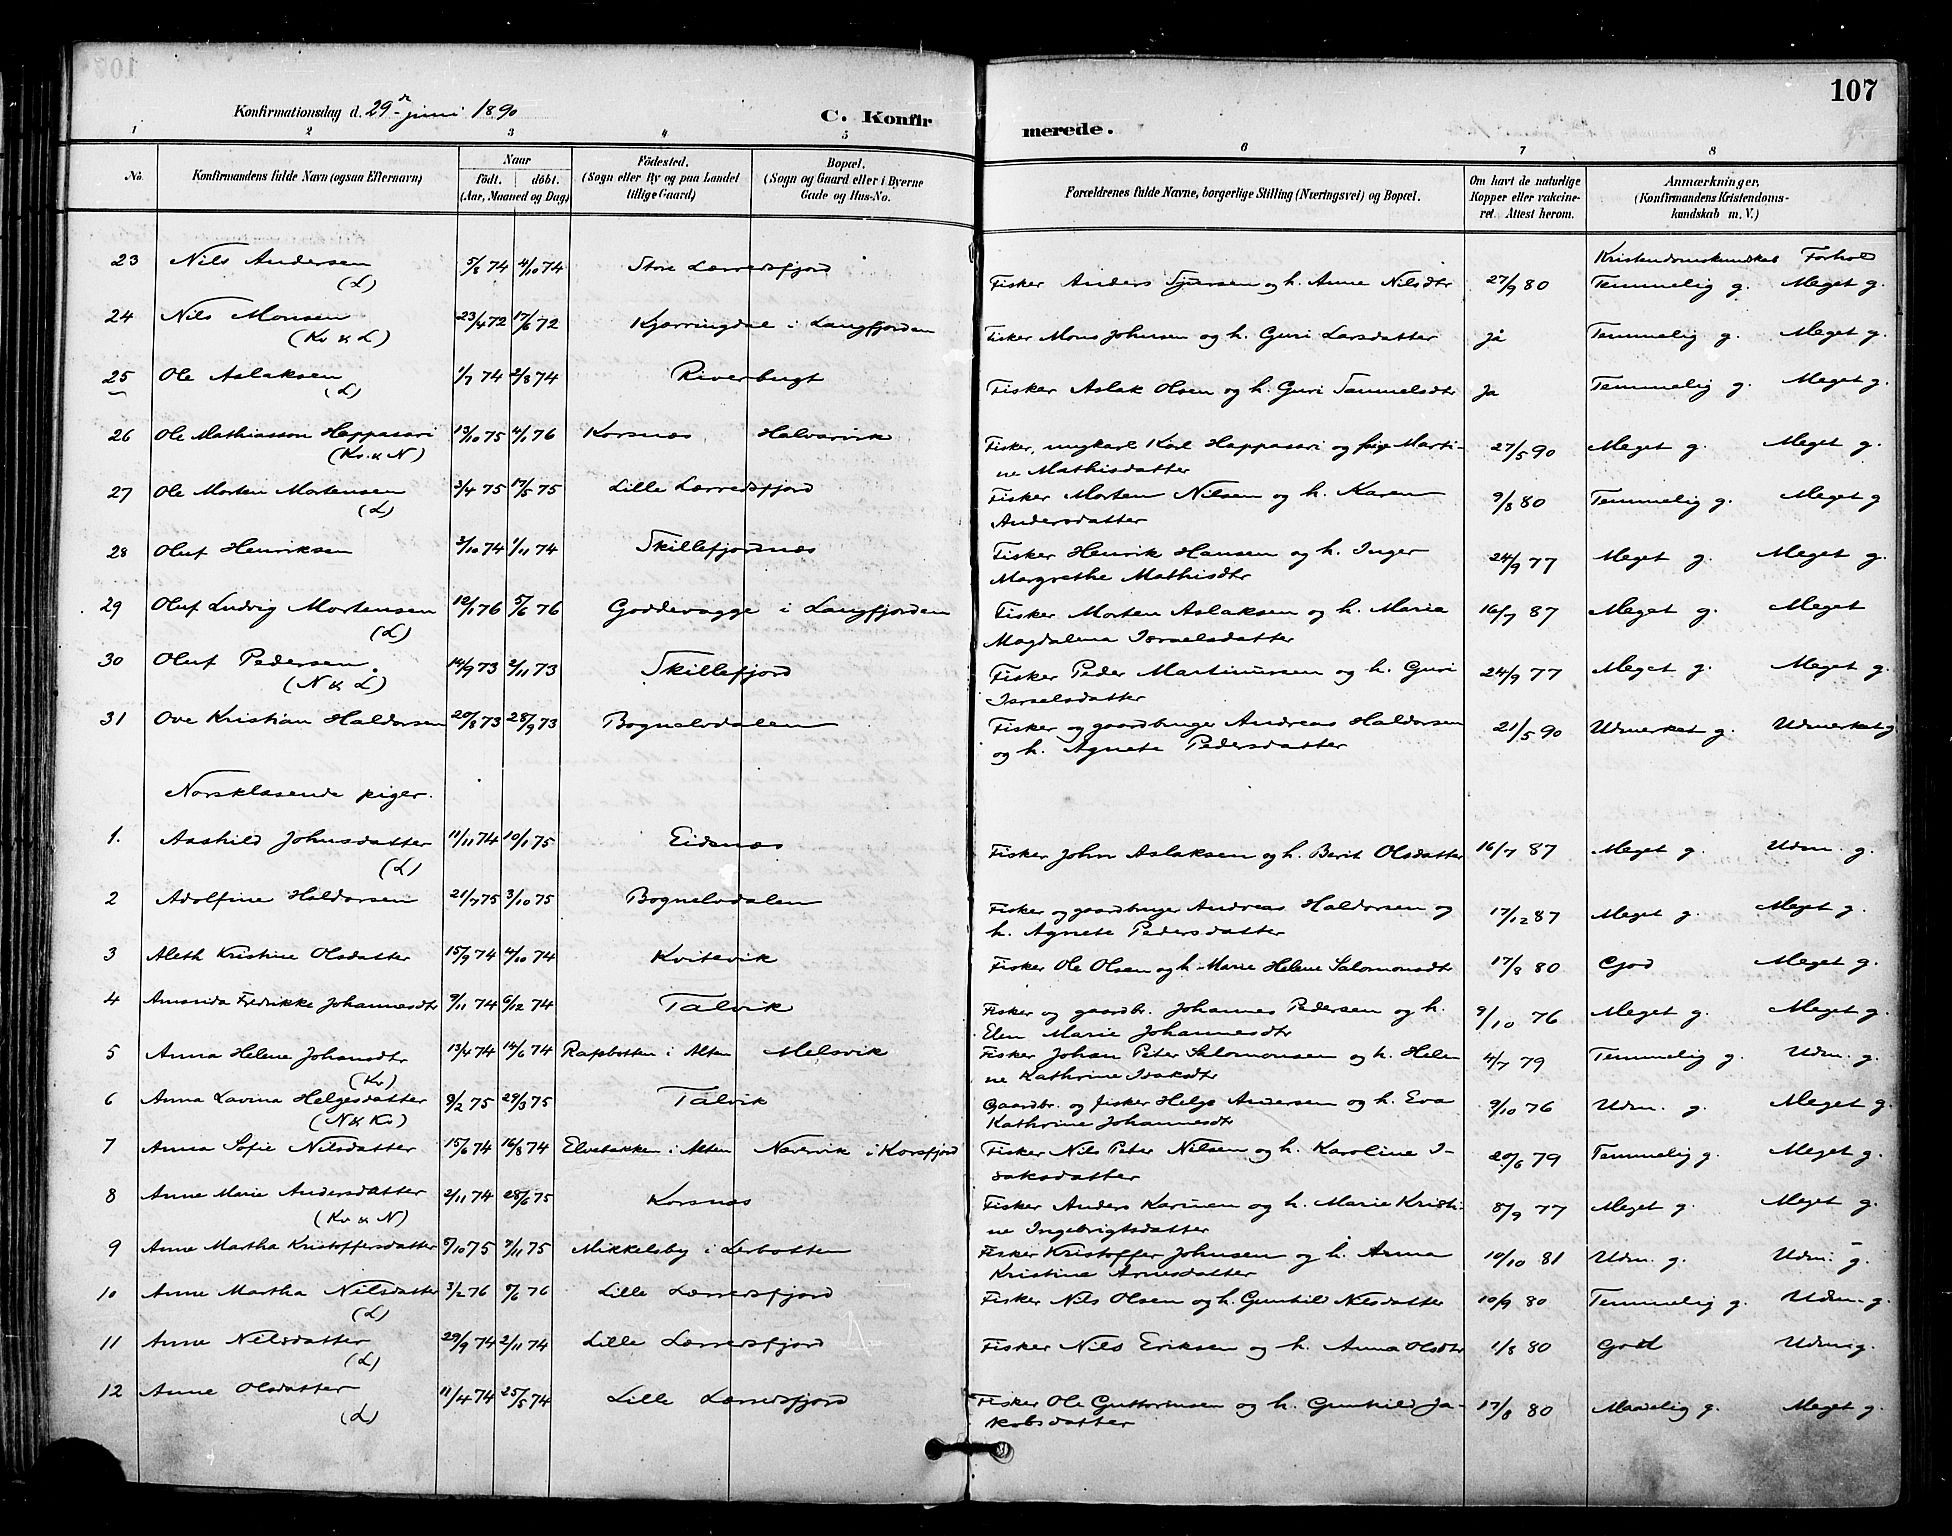 107
Konfirmationsdag d. 29de juni 1890
C. Konfirmerede.
1 2 3 4 5 6 7 8
No. Konfirmandens fulde Navn (ogsaa Efternavn) Naar födt. döbt. (Aar, Maaned og Dag) Födested. (Sogn eller By og paa Landet tillige Gaard) Bopæl. (Sogn og Gaard eller i Byerne Gade og Hus-No. Forældrenes fulde Navne, borgerlige Stilling (Næringsvei) og Bopæl. Om havt de naturlige Kopper eller vakcineret. Attest herom. Anmærkninger. (Konfirmandens Kristendomskundskab m. V.)
Kristendomskundskab Forhold
23 Nils Andersen (L) 5/8 74 4/10 74 Store Lærredsfjord Fisker Anders Sjursen og h. Anne Nilsdtr 27/9 80 Temmelig g. Meget g.
24 Nils Monsen (Kv & L) 23/4 72 17/6 72 Kjærringdal i Langfjorden Fisker Mons Johnsen og h. Guri Larsdatter Ja Temmelig g. Meget g.
25 Ole Aslaksen (L) 1/7 74 2/8 74 Riverbugt Fisker Aslak Olsen og h. Guri Sammelsdtr Ja Temmelig g. Meget g.
26 Ole Mathiasson Happasari (Kv. & N) 13/10 75 4/1 76 Korsnæs Halvarvik Fisker, ungkarl Karl Happasari og pige Marti-
ne Mathisdatter 27/5 90 Meget g. Meget g.
27 Ole Morten Mortensen (L) 3/4 75 17/5 75 Lille Lærredsfjord Fisker Morten Nilsen og h. Karen
Andersdatter 9/8 80 Temmelig g. Meget g
28 Oluf Henriksen 3/10 74 1/11 74 Skillefjordnæs Fisker Henrik Hansen og h. Inger
Margrethe Mathisdtr 24/9 77 Meget g. Meget g.
29 Oluf Ludvig Mortensen (L) 12/1 76 5/6 76 Goddevagge i Langfjorden Fisker Morten Aslaksen og h. Maria
Magdalena Israelsdatter 16/7 87 Meget g. Meget
30 Oluf Pedersen. (N & L) 14/9 73 2/11 73 Skillefjord Fisker Peder Martinussen og h. Guri
Israelsdatter 24/9 77 Meget g. Meget g.
31 Ove Kristian Haldorsen 20/8 73 28/9 73 Bognelvdalen Fisker og gaardbruger Andreas Haldorsen
og h. Agnete Pedersdatter 21/5 90 Udmerket g. Udmerket g
Norsklæsende piger.
1. Aashild Johnsdatter (L) 11/11 74 10/1 75 Eidsnæs Fisker John Aslaksen og h. Berit Olsdatter 16/7 87 Meget g. Udm. g.
2 Adolfine Haldorsen 21/7 75 3/10 75 Bognelvdalen Fisker og gaardbruger Andreas Haldorsen og
h. Agnete Pedersdatter 17/12 87 Meget g. Meget g.
3 Aleth Kristine Olsdatter 15/9 74 4/10 74 Kvitevik Fisker Ole Olsen og h. Marie Helene Salomonsdtr 17/8 80 God Meget g.
4 Amanda Fredrikke Johannesdtr 9/11 74 6/12 74 Talvik Fisker og gaardbr. Johannes Pedersen og h.
Elen Marie Johannesdtr 9/10 76 Meget g. Meget g.
5 Anna Helene Johansdtr (Kv) 13/4 74 14/6 74 Rafsbotten i Alten Melsvik Fisker Johan Peter Salomonsen og h. Hele
ne Kathrine Isaksdtr 4/7 79 Temmelig g. Udm. g.
6 Anna Lavina Helgesdatter (N & Kv) 9/2 75 29/3 75 Talvik Gaardbr. og fisker Helge Andersen og h. Eva
Kathrine Johannesdtr 9/10 76 Udm. g. Meget g.
7 Anna Sofie Nilsdatter 15/6 74 16/8 74 Elvebakken i Alten Naververik i Korsfjord Fisker Nils Peter Nilsen og h. Karoline I-
saksdatter 20/6 79 Temmelig g. Meget g.
8 Anne Marie Andersdatter (Kv & N) 2/11 74 28/6 75 Korsnæs Fisker Anders Karinen og h. Marie Kristi-
ne Ingebrigtsdatter 8/9 77 Meget g. Meget g.
9 Anne Martha Kristoffersdatter 5/10 75 7/11 75 Mikkelsby i Lerbotten Fisker Kristoffer Johnsen og h. Anna
Kristine Arnesdatter 10/10 81 Udm. g. Udm. g.
10 Anne Martha Nilsdatter (L) 3/2 76 5/6 76 Lille Lærredsfjord Fisker Nils Olsen og h. Gunhild Nilsdatter 10/9 80 Temmelig g. Udm. g.
11 Anne Nilsdatter (L) 29/9 74 2/11 74 Lille Lærredsfjord Fisker Nils Eriksen og h. Anna Olsdtr 1/8 80 Godt Udm g.
12 Anne Olsdatter (L) 11/4 74 25/5 74 Lille Lærredsfjord Fisker Ole Guttormsen og h. Gunhild Ja-
kobsdatter 17/8 80 Maadelig g. Meget g.